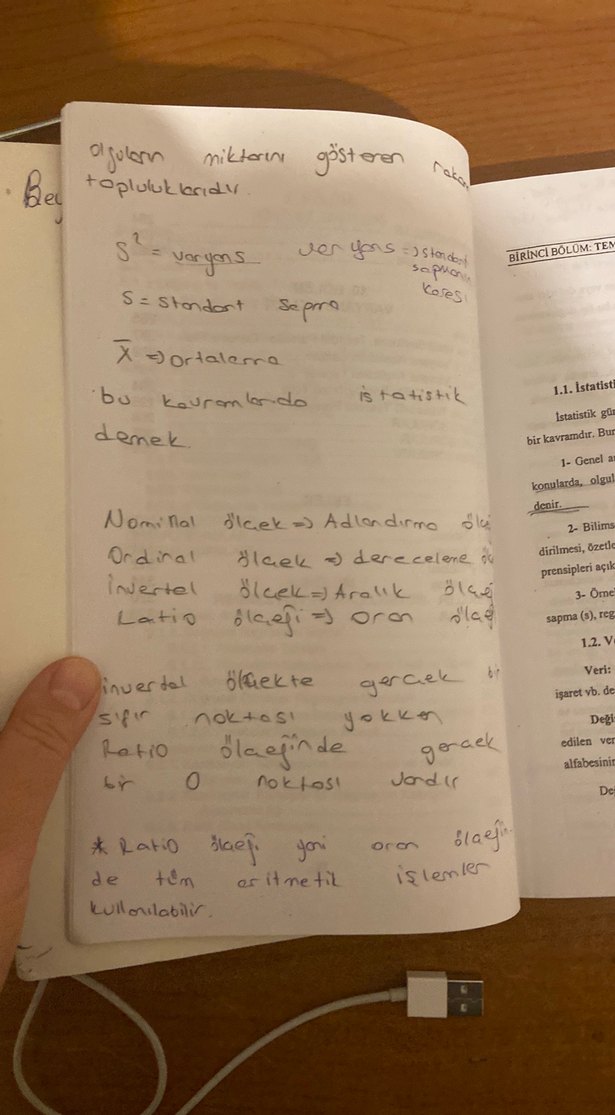 olguların miktarını gösteren
topluluklarıdır.
S² = varyans varyans => standart
sapmanın
karesi
S = standart sapma
X̄ => ortalama
bu kavramlarda istatistik
demek.
Nominal ölçek => Adlandırma
Ordinal ölçek => derecelene
invertel ölçek => Aralık
Ratio ölçeği => oran
invertal ölçekte gerçek bir
sıfır noktası yokken
Ratio ölçeğinde gerçek
bir 0 noktası vardır
* Ratio ölçeği yani oran ölçeğin-
de tüm aritmetik işlemler
kullanılabilir.
Bey
BİRİNCİ BÖLÜM: TEM
1.1. İstatisti
İstatistik gü
bir kavramdır. Bun
1- Genel a
konularda, olgul
denir.
2- Bilims
dirilmesi, özetle
prensipleri açık
3- Örne
sapma (s), reg
1.2. V
Veri:
işaret vb. de
Deği
edilen ver
alfabesinin
De